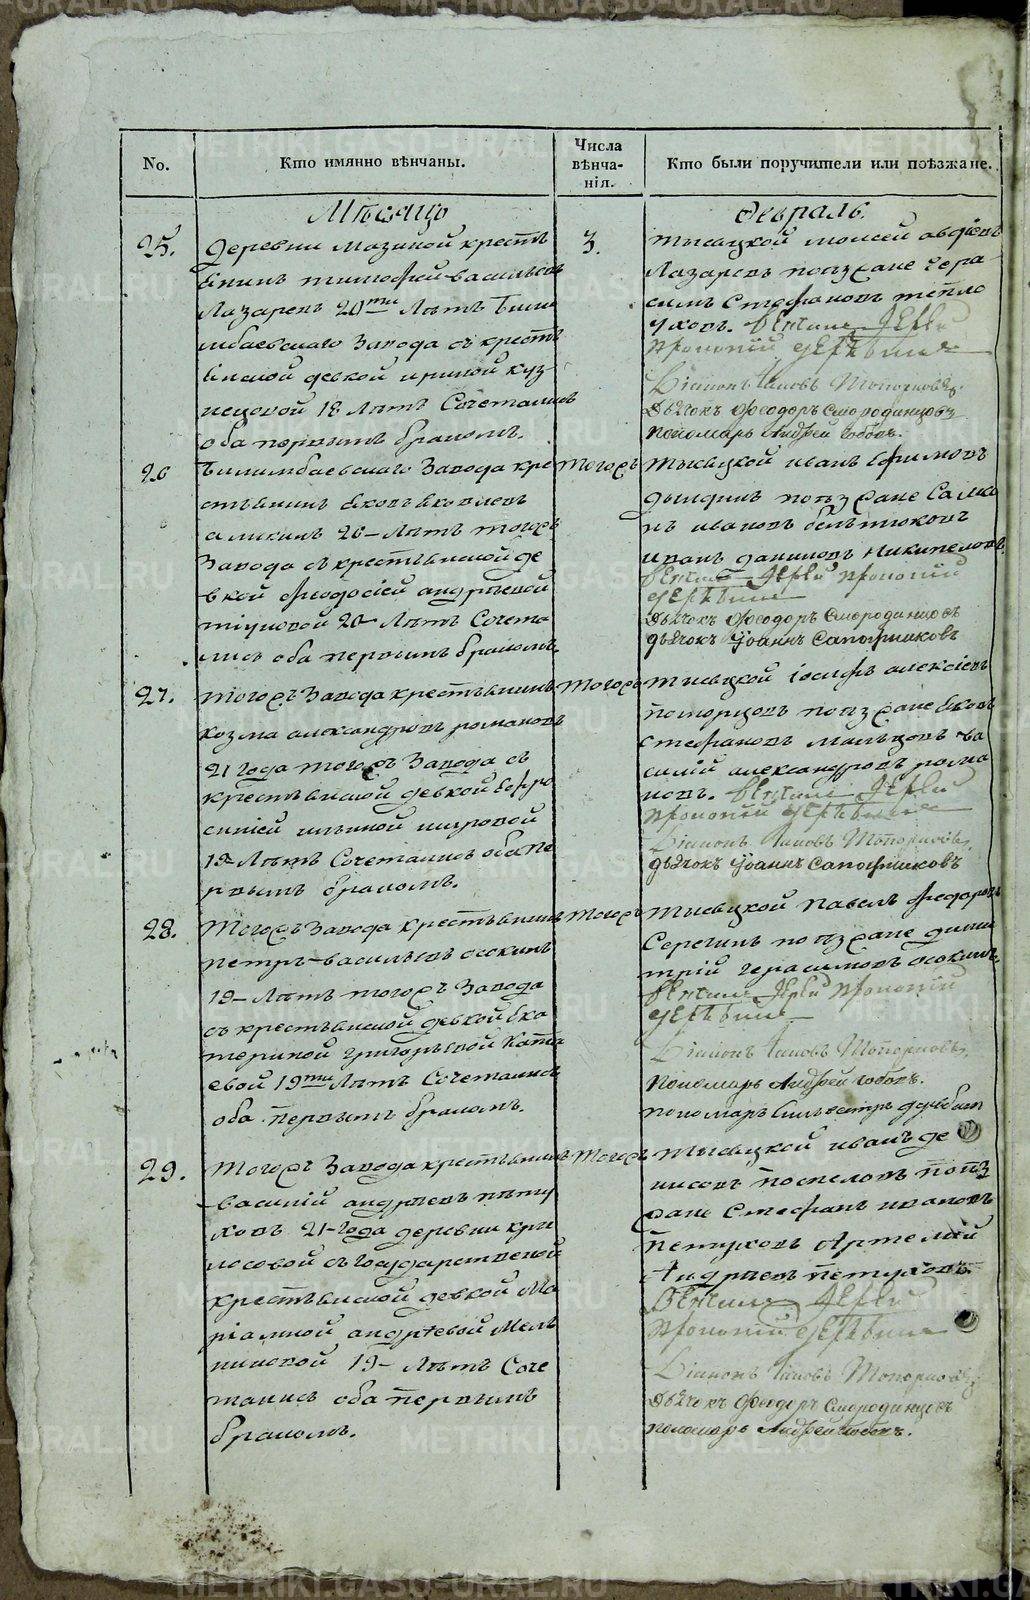 No.
Кто имянно вѣнчаны.
Числа
вѣнча-
нія.
Кто были поручители или поѣзжане.
Мѣсяцъ
Февраль.
25.
Деревни Мазиной крестъ
янинъ Тимофей Васильевъ
Лазаревъ 20ти Лѣтъ Били
мбаевскаго Завода съ крестъ
янской девкой Ириной Куз-
нецовой 18 Лѣтъ Сочетались
оба первымъ бракомъ.
3.
тысяцкой Моисей Авдіевъ
Лазаревъ поѣзжане Гера-
симъ Стефановъ Тепло
уховъ. Венчалъ Іерей
Прокопій
Діаконъ Іаковъ Топорковъ
Дьячокъ Феодоръ Смородинцовъ
Пономарь Андрей Бобовъ.
26
Билимбаевскаго Завода кре
стьянинъ Яковъ Яковлевъ
Аликинъ 20 Лѣтъ тогожъ
Завода съ крестьянской де
вкой Феодосіей Андреевой
20 Лѣтъ Сочета
лись оба первымъ бракомъ.
тогожъ
тысяцкой Иванъ Ефимовъ
поѣзжане
нъ Ивановъ
Иванъ Даниловъ Никипеловъ.
Венчалъ Іерей Прокопій
Дьячокъ Феодоръ Смородинцовъ
дьячокъ Іоаннъ Сапожниковъ
27.
тогожъ Завода крестьянинъ
Козма Александровъ Романовъ
21 Года тогожъ Завода съ
крестьянской девкой Ефро
синіей Ильиной
19 Лѣтъ Сочетались оба пе
рвымъ бракомъ.
тогожъ
тысяцкой Іосифъ Алексіевъ
поѣзжане Яковъ
Стефановъ Мальцовъ Ва
силій Александровъ Рома
новъ. Венчалъ Іерей
Прокопій
Діаконъ Іаковъ Топорковъ
дьячокъ Іоаннъ Сапожниковъ
28.
тогожъ Завода крестьянинъ
Петръ Васильевъ Осокинъ
19 Лѣтъ тогожъ Завода
съ крестьянской девкой Ека
териной Григорьевой Ката
евой 19ти Лѣтъ Сочетались
оба первымъ бракомъ.
тогожъ
тысяцкой Павелъ Федоровъ
Серегинъ поѣзжане Дими
трій Герасимовъ Осокинъ
Венчалъ Іерей Прокопій
Діаконъ Іаковъ Топорковъ
Пономарь Андрей Бобовъ.
пономарь Сильвестръ
29.
тогожъ Завода крестьянинъ
Василій Андреевъ Пету
ховъ 21 Года деревни Кры
лосовой съ Государственой
крестьянской девкой Ма
ріамной Андреевой Мель
никовой 19 Лѣтъ Соче
тались оба первымъ
бракомъ.
тогожъ
тысяцкой Иванъ Де
нисовъ Поспеловъ поѣз
жане Стефанъ Ивановъ
Петуховъ Артемій
Андреевъ Петуховъ.
Венчалъ Іерей
Прокопій
Діаконъ Іаковъ Топорковъ
Дьячокъ Феодоръ Смородинцовъ
пономарь Андрей Бобовъ.
METRIKI.GASO-URAL.RU